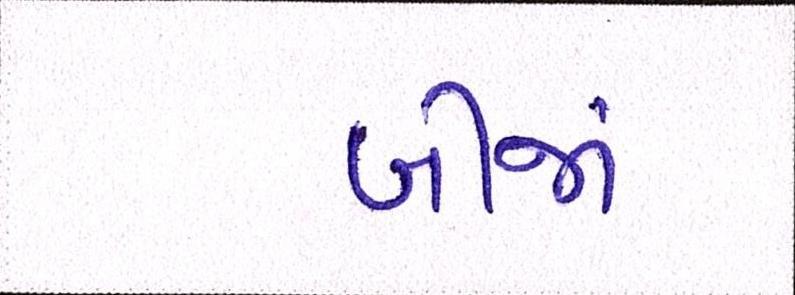 બીજાં